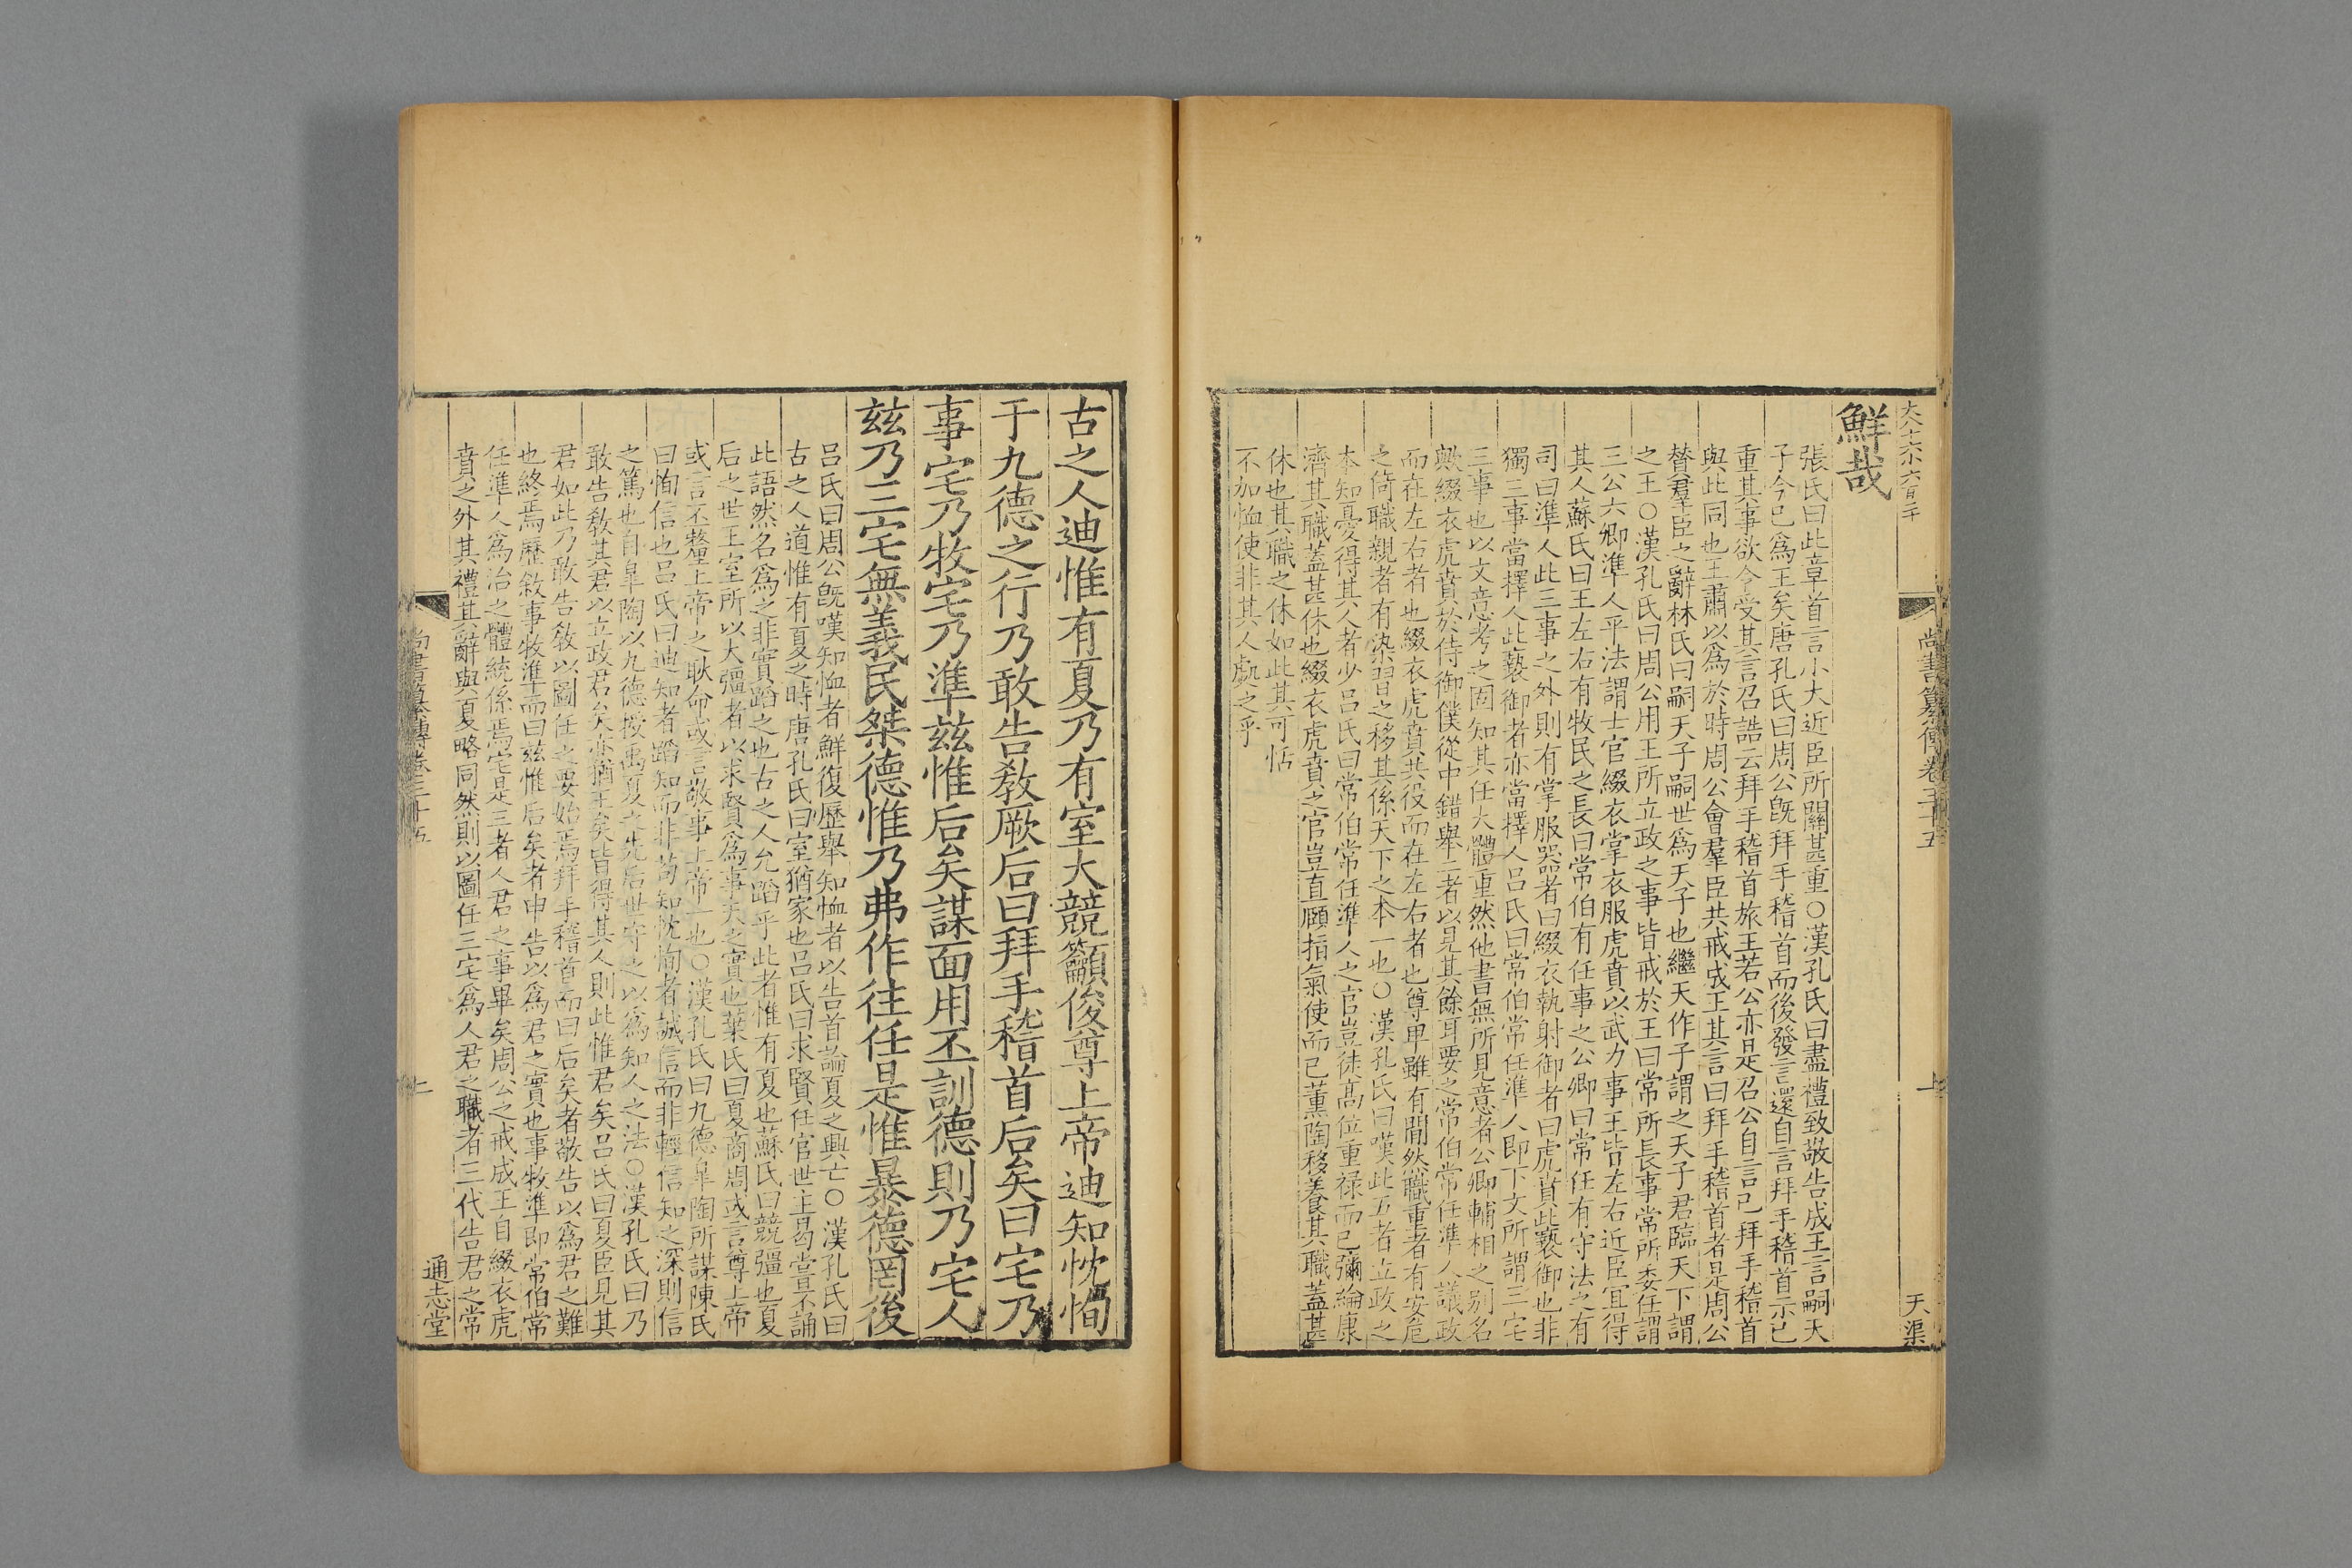 鮮哉
張氏曰此章首言小大近臣所關甚重○漢孔氏曰盡禮致敬告成王言嗣天
子今已爲王矣唐孔氏曰周公旣拜手稽首而後發言還自言拜手稽首示已
重其事欲令受其言召誥云拜手稽首旅王若公亦是召公自言已拜手稽首
與此同也王肅以爲於時周公會羣臣共戒成王其言曰拜手稽首者是周公
替羣臣之辭林氏曰嗣天子嗣世爲天子也繼天作子謂之天子君臨天下謂
之王○漢孔氏曰周公用王所立政之事皆戒於王曰常所長事常所委任謂
三公六卿準人平法謂士官綴衣掌衣服虎賁以武力事王皆左右近臣宜得
其人蘇氏曰王左右有牧民之長曰常伯有任事之公卿曰常任有守法之有
司曰準人此三事之外則有掌服器者曰綴衣執射御者曰虎賁此褻御也非
獨三事當擇人此褻御者亦當擇人呂氏曰常伯常任準人即下文所謂三宅
三事也以文意考之固知其任大體重然他書無所見意者公卿輔相之别名
歟綴衣虎賁於侍御僕從中錯舉二者以見其餘耳要之常伯常任準人議政
而在左右者也綴衣虎賁共役而在左右者也尊甲雖有間然職重者有安危
之倚職親者有染習之移其係天下之本一也○漢孔氏曰嘆此五者立政之
本知憂得其人者少呂氏曰常伯常任準人之官豈徒髙位重禄而已彌綸康
濟其職蓋甚休也綴衣虎賁之官豈直頤指氣使而已薫陶移養其職蓋甚
休也其職之休如此其可恬
不加恤使非其人處之乎
尚書纂傳卷三十五
上
天渠
古之人迪惟有夏乃有室大競籲俊尊上帝迪知忱恂
于九德之行乃敢告敎厥后曰拜手稽首后矣曰宅乃
事宅乃牧宅乃準兹惟后矣謀面用丕訓德則乃宅人
兹乃三宅無義民桀德惟乃弗作往任是惟暴德罔後
呂氏曰周公旣嘆知恤者鮮復歷舉知恤者以告首論夏之興亡○漢孔氏曰
古之人道惟有夏之時唐孔氏曰室猶家也呂氏曰求賢任官世主曷嘗不誦
此語然名爲之非實蹈之也古之人允蹈乎此者惟有夏也蘇氏曰競彊也夏
后之世王室所以大彊者以求賢爲事天之實也葉氏曰夏商周或言尊上帝
或言丕釐上帝之耿命或言敬事上帝一也○漢孔氏曰九德臯陶所謀陳氏
曰恂信也呂氏曰迪知者蹈知而非苟知忱恂者誠信而非輕信知之深則信
之篤也自臯陶以九德授禹夏之先后世守之以爲知人之法○漢孔氏曰乃
敢告敎其君以立政君矣亦猶王矣皆得其人則此惟君矣呂氏曰夏臣見其
君如此乃敢告敎以圖任之要始焉拜手稽首而曰后矣者敬告以爲君之難
也終焉歷敘事牧準而曰兹惟后矣者申告以爲君之實也事牧準即常伯常
任準人爲治之體統係焉宅是三者人君之事畢矣周公之戒成王自綴衣虎
賁之外其禮其辭與夏略同然則以圖任三宅爲人君之職者三代告君之常
尚書纂傳卷三十五
上
通志堂